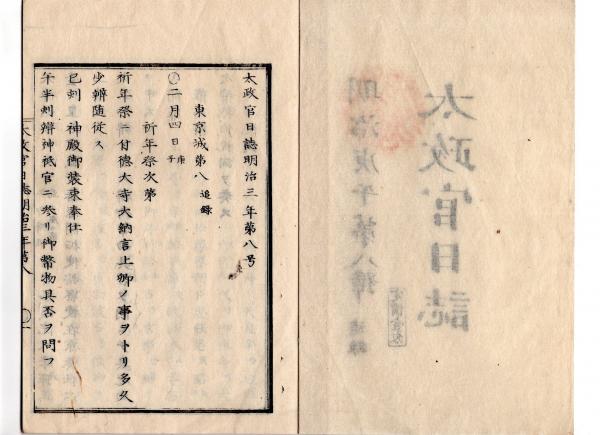 太政官日誌明治三年第八号
東京城第八 追録
○二月四日 庚子
祈年祭次第
祈年祭ニ付徳大寺大納言上卿ノ事ヲトリ多久
少辨随従ス
巳刻 神殿御装束奉仕
午半刻辨神祇官ニ参リ御幣物具否ヲ問フ
太政官日誌明治三年第八
太政官日誌
明治庚午第八号 追録